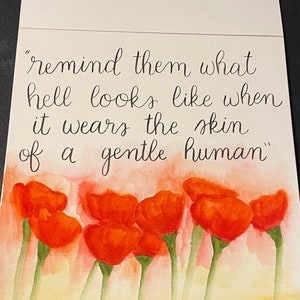 "remind them what
hell looks like when
it wears the skin
of a gentle human"